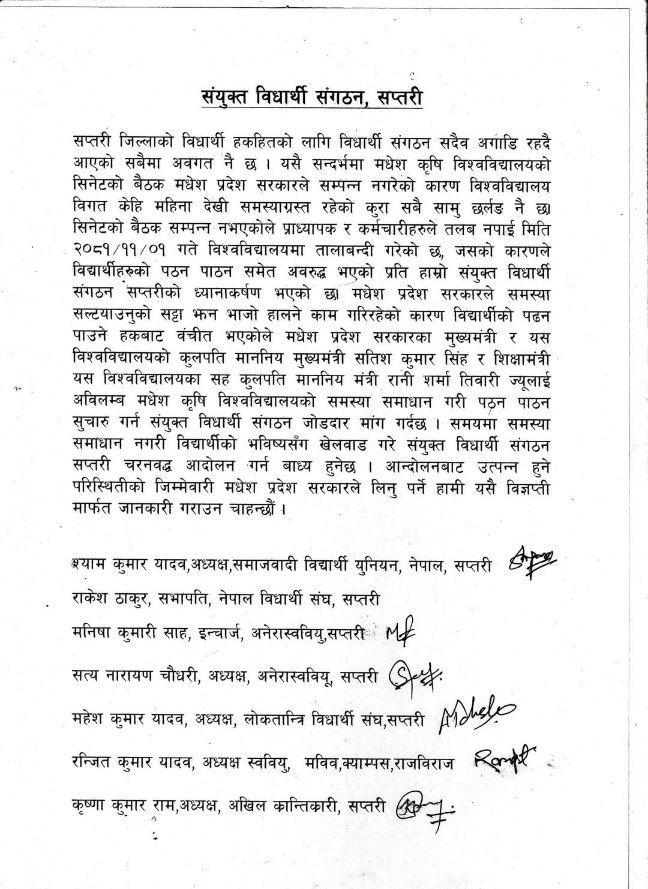 संयुक्त विधार्थी संगठन, सप्तरी
सप्तरी जिल्लाको विधार्थी हकहितको लागि विधार्थी संगठन सदैव अगाडि रहदै
आएको सबैमा अवगत नै छ । यसै सन्दर्भमा मधेश कृषि विश्वविद्यालयको
सिनेटको बैठक मधेश प्रदेश सरकारले सम्पन्न नगरेको कारण विश्वविद्यालय
विगत केहि महिना देखी समस्याग्रस्त रहेको कुरा सबै सामु छर्लङ नै छ।
सिनेटको बैठक सम्पन्न नभएकोले प्राध्यापक र कर्मचारीहरुले तलब नपाई मिति
२०८१/११/०१ गते विश्वविद्यालयमा तालाबन्दी गरेको छ, जसको कारणले
विद्यार्थीहरुको पठन पाठन समेत अवरुद्ध भएको प्रति हाम्रो संयुक्त विधार्थी
संगठन सप्तरीको ध्यानाकर्षण भएको छ। मधेश प्रदेश सरकारले समस्या
सल्टयाउनुको सट्टा झन भाजो हालने काम गरिरहेको कारण विद्यार्थीको पढन
पाउने हकबाट वंचीत भएकोले मधेश प्रदेश सरकारका मुख्यमंत्री र यस
विश्वविद्यालयको कुलपति माननिय मुख्यमंत्री सतिश कुमार सिंह र शिक्षामंत्री
यस विश्वविद्यालयका सह कुलपति माननिय मंत्री रानी शर्मा तिवारी ज्यूलाई
अविलम्ब मधेश कृषि विश्वविद्यालयको समस्या समाधान गरी पठन पाठन
सुचारु गर्न संयुक्त विधार्थी संगठन जोडदार मांग गर्दछ । समयमा समस्या
समाधान नगरी विद्यार्थीको भविष्यसँग खेलवाड गरे संयुक्त विधार्थी संगठन
सप्तरी चरनवद्ध आदोलन गर्न बाध्य हुनेछ । आन्दोलनबाट उत्पन्न हुने
परिस्थितीको जिम्मेवारी मधेश प्रदेश सरकारले लिनु पर्ने हामी यसै विज्ञप्ती
मार्फत जानकारी गराउन चाहन्छौं ।
श्याम कुमार यादव,अध्यक्ष,समाजवादी विद्यार्थी युनियन, नेपाल, सप्तरी
राकेश ठाकुर, सभापति, नेपाल विधार्थी संघ, सप्तरी
मनिषा कुमारी साह, इन्चार्ज, अनेरास्ववियु,सप्तरी
सत्य नारायण चौधरी, अध्यक्ष, अनेरास्ववियू, सप्तरी
महेश कुमार यादव, अध्यक्ष, लोकतान्त्रि विधार्थी संघ,सप्तरी
रन्जित कुमार यादव, अध्यक्ष स्ववियु, मविव,क्याम्पस,राजविराज
कृष्णा कुमार राम,अध्यक्ष, अखिल कान्तिकारी, सप्तरी